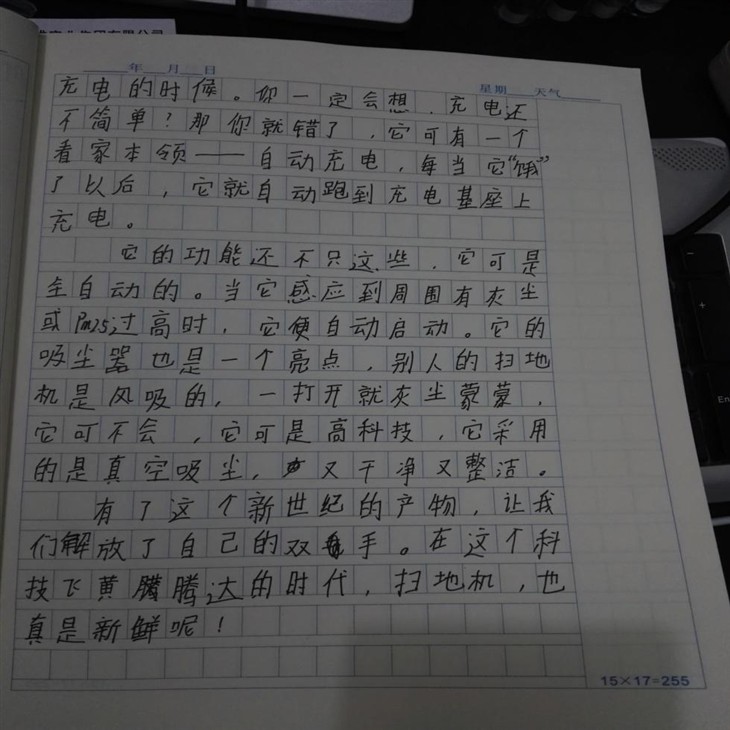 年 月 日
星期 天气
充电的时候。你一定会想，充电还
不简单？那你就错了，它可有一个
看家本领——自动充电，每当它“饿”
了以后，它就自动跑到充电基座上
充电。
它的功能还不只这些，它可是
全自动的。当它感应到周围有灰尘
或Pm2.5过高时，它便自动启动。它的
吸尘器也是一个亮点，别人的扫地
机是风吸的，一打开就灰尘蒙蒙，
它可不会，它可是高科技，它采用
的是真空吸尘，又干净又整洁。
有了这个新世纪的产物，让我
们解放了自己的双手。在这个科
技飞黄腾腾达的时代，扫地机，也
真是新鲜呢！
15×17=255